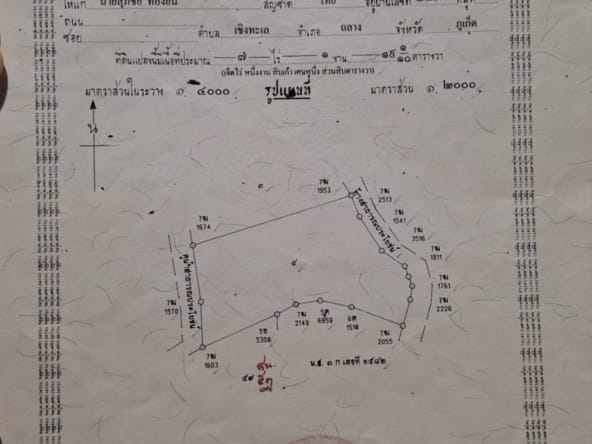 ให้แก่ นายสุภชัย ทองอ่น สัญชาติ ไทย อยู่บ้านเลขที่ หมู่ที่
ถนน
ซอย ตำบล เชิงทะเล อำเภอ ถลาง จังหวัด ภูเก็ต
ที่ดินแปลงนี้มีเนื้อที่ประมาณ ๗ ไร่ ๑ งาน ๑๙ ๑/๑๐ ตารางวา
(เจ็ดไร่ หนึ่งงาน สิบเก้า เศษหนึ่ง ส่วนสิบตารางวา)
มาตราส่วนในระวาง ๑: ๔๐๐๐ รูปแผนที่ มาตราส่วน ๑: ๒๐๐๐
น
๓
7ฆ
1952
ทางสาธารณประโยชน์
7ฆ
2513
7ฆ
1541
7ฆ
3516
7ฆ
1911
7ฆ
1761
7ฆ
2228
7ฆ
1674
คูน้ำสาธารณประโยชน์
7ฆ
1570
๔
7ฆ
1603
5ช
5308
7ฆ
2149
6959
6ค
1518
7ฆ
2055
๕๙
น.ส. ๓ ก เลขที่ ๑๕๘๒